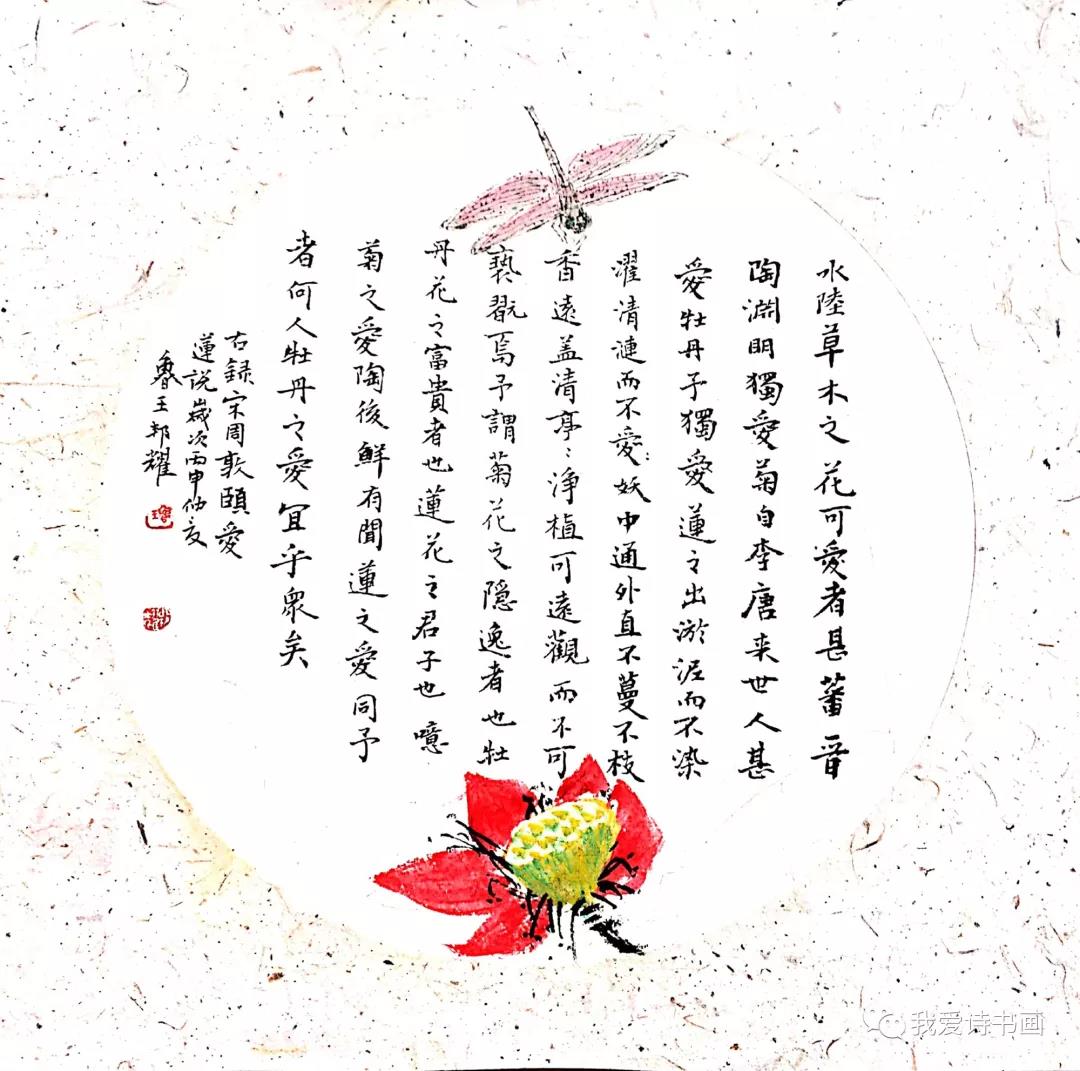 水陸草木之花可愛者甚蕃晉
陶淵明獨愛菊自李唐来世人甚
愛牡丹予獨愛蓮之出淤泥而不染
濯清漣而不爱:妖中通外直不蔓不枝
香遠盖清亭〻淨植可遠觀而不可
褻翫焉予謂菊花之隱逸者也牡
丹花之富貴者也蓮花之君子也噫
菊之愛陶後鮮有聞蓮之愛同予
者何人牡丹之愛宜乎眾矣
右録宋周敦頤愛
蓮說歲次丙申仲夏
魯王邦耀
我爱诗书画